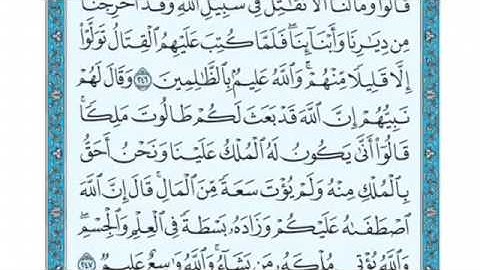 قَالُوا۟ وَمَا لَنَآ أَلَّا نُقَٰتِلَ فِى سَبِيلِ ٱللَّهِ وَقَدْ أُخْرِجْنَا
مِن دِيَٰرِنَا وَأَبْنَآئِنَا ۖ فَلَمَّا كُتِبَ عَلَيْهِمُ ٱلْقِتَالُ تَوَلَّوْا۟
إِلَّا قَلِيلًا مِّنْهُمْ ۗ وَٱللَّهُ عَلِيمٌۢ بِٱلظَّٰلِمِينَ ٢٤٦ وَقَالَ لَهُمْ
نَبِيُّهُمْ إِنَّ ٱللَّهَ قَدْ بَعَثَ لَكُمْ طَالُوتَ مَلِكًا ۚ
قَالُوٓا۟ أَنَّىٰ يَكُونُ لَهُ ٱلْمُلْكُ عَلَيْنَا وَنَحْنُ أَحَقُّ
بِٱلْمُلْكِ مِنْهُ وَلَمْ يُؤْتَ سَعَةً مِّنَ ٱلْمَالِ ۚ قَالَ إِنَّ ٱللَّهَ
ٱصْطَفَىٰهُ عَلَيْكُمْ وَزَادَهُۥ بَسْطَةً فِى ٱلْعِلْمِ وَٱلْجِسْمِ ۖ
وَٱللَّهُ يُؤْتِى مُلْكَهُۥ مَن يَشَآءُ ۚ وَٱللَّهُ وَٰسِعٌ عَلِيمٌ ٢٤٧